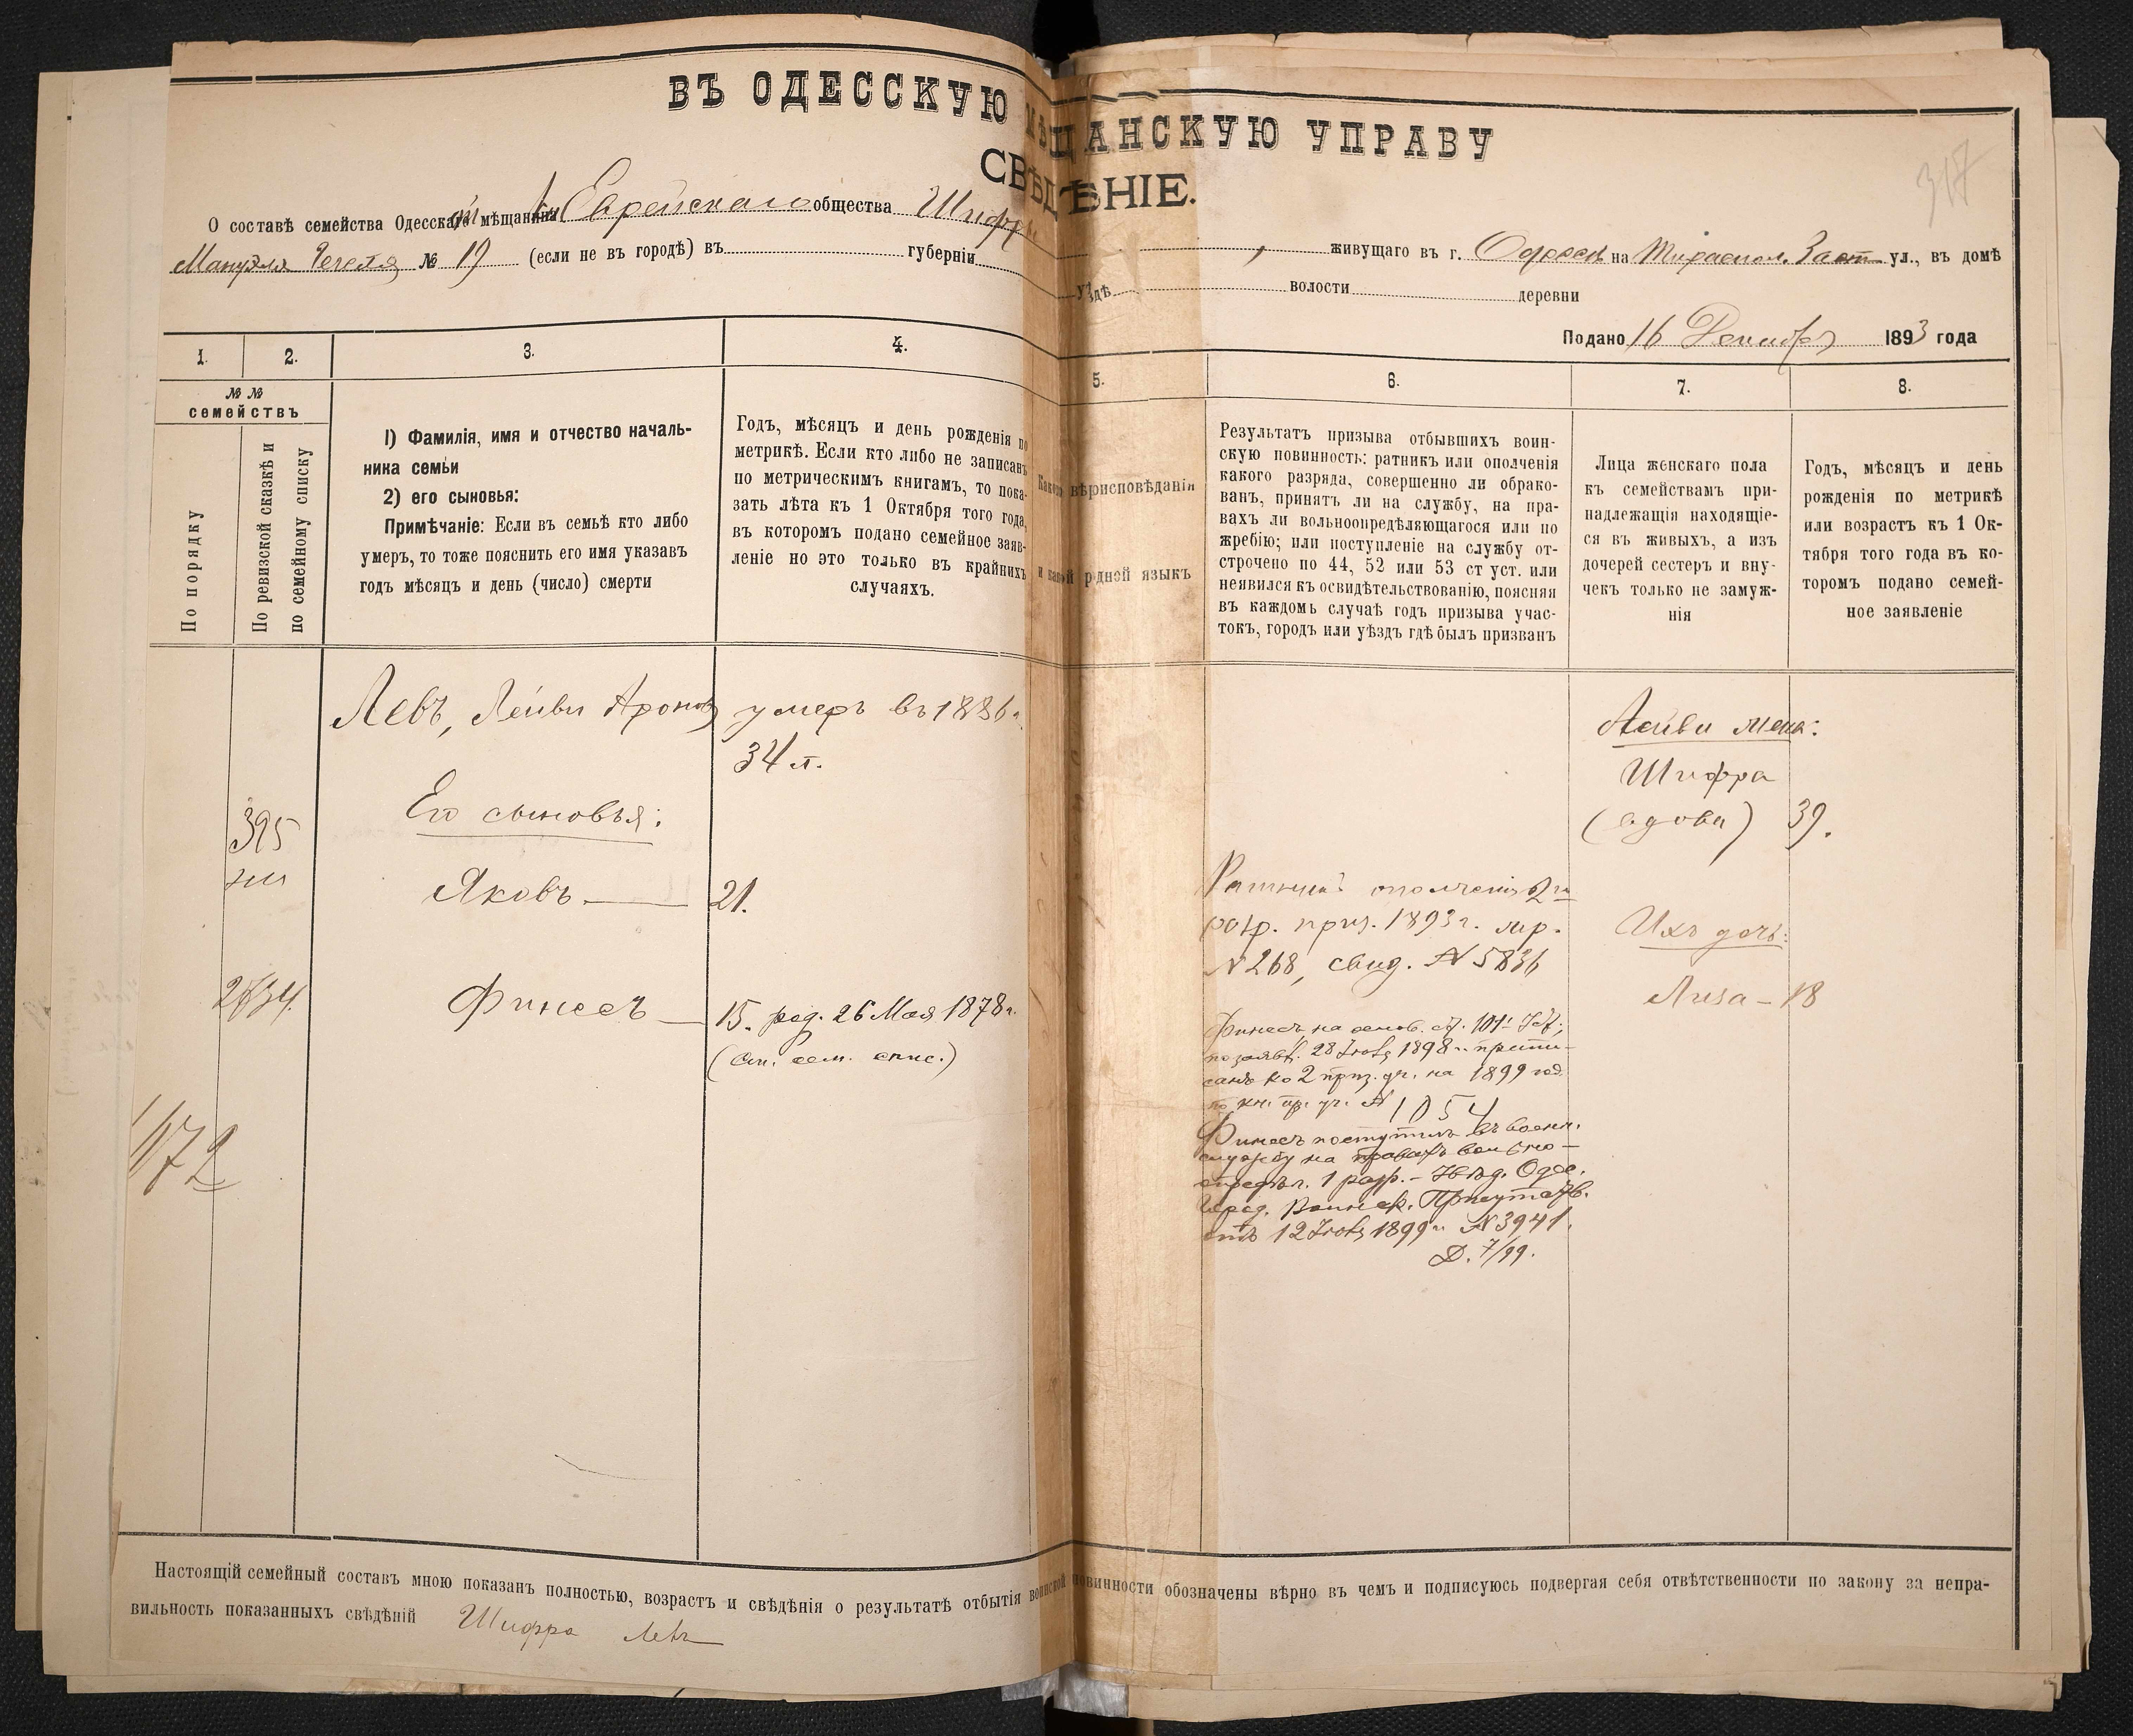 ВЪ ОДЕССКУЮ МѢЩАНСКУЮ УПРАВУ
СВѢДѢНІЕ.
317
О составѣ семейства Одесской мѣщанки Еврейскаго общества Шифры
, живущаго въ г. Одессѣ на Тираспол. Заст. ул., въ домѣ
Мануэля № 19 (если не въ городѣ) въ губерніи
уѣздѣ волости деревни
Подано 16 Декабря 1893 года
1. 2. 3. 4. 5. 6. 7. 8.
№ №
семействъ
По порядку
По ревизской сказкѣ и
по семейному списку
1) Фамилія, имя и отчество началь-
ника семьи
2) его сыновья:
Примѣчаніе: Если въ семьѣ кто либо
умеръ, то тоже пояснить его имя указавъ
годъ мѣсяцъ и день (число) смерти
Годъ, мѣсяцъ и день рожденія по
метрикѣ. Если кто либо не записанъ
по метрическимъ книгамъ, то пока-
зать лѣта къ 1 Октября того года,
въ которомъ подано семейное заяв-
леніе но это только въ крайнихъ
случаяхъ.
Какого вѣроисповѣданія
и какой родной языкъ
Результатъ призыва отбывшихъ воин-
скую повинность: ратникъ или ополченія
какого разряда, совершенно ли обрако-
ванъ, принятъ ли на службу, на пра-
вахъ ли вольноопредѣляющагося или по
жребію; или поступленіе на службу от-
строчено по 44, 52 или 53 ст уст. или
неявился къ освидѣтельствованію, поясняя
въ каждомъ случаѣ годъ призыва учас-
токъ, городъ или уѣздъ гдѣ былъ призванъ
Лица женскаго пола
къ семействамъ при-
надлежащія находящіе-
ся въ живыхъ, а изъ
дочерей сестеръ и вну-
чекъ только не замуж-
нія
Годъ, мѣсяцъ и день
рожденія по метрикѣ
или возрастъ къ 1 Ок-
тября того года въ ко-
торомъ подано семей-
ное заявленіе
Левъ, Лейви Аронов умеръ въ 1886 г.
34 л.
Его сыновья:
395
Яковъ — 21.
2634.
Финеесъ — 15. род. 26 Мая 1878 г.
(см. сем. спис.)
1172
Ратникъ ополченія 2го
разр. приз. 1893 г. жр.
№ 268, свид. № 5836
Финеесъ на основ. ст. 101 Уст.,
по заявл. 28 1898 г. припи-
санъ ко 2 приз. уч. на 1899 год
по кн. пр. уч. № 1054
Финеесъ поступилъ въ воен.
службу на правахъ вольно-
опредѣл. 1 разр. – Увѣд. Одес.
Город. Воинск. Присутств.
отъ 12 1899 г. № 3941.
Д. 7/99.
Лейви жена:
Шифра
(вдова) 39.
Ихъ дочь:
Лиза – 18
Настоящій семейный составъ мною показанъ полностью, возрастъ и свѣдѣнія о результатѣ отбытія воинской повинности обозначены вѣрно въ чемъ и подписуюсь подвергая себя отвѣтственности по закону за непра-
вильность показанныхъ свѣдѣній Шифра Левъ